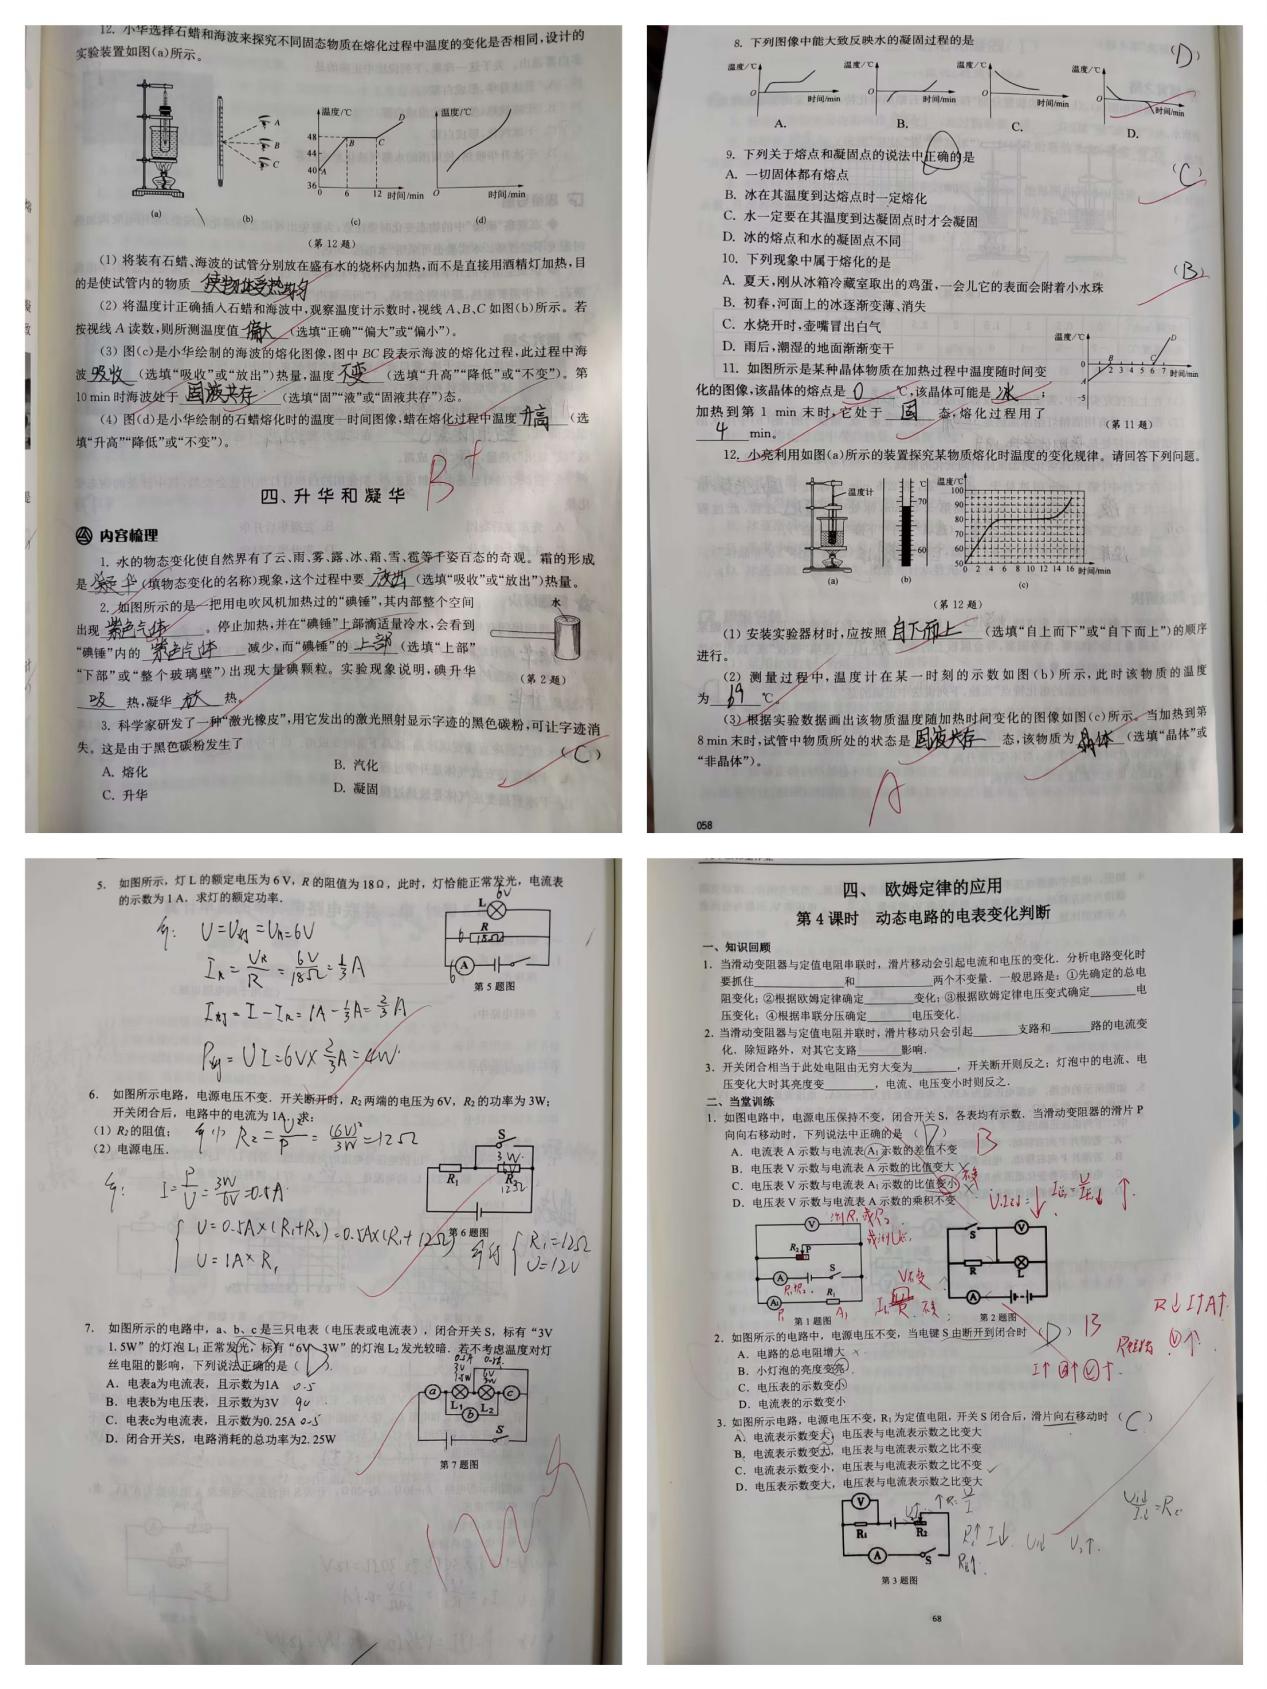 12. 小华选择石蜡和海波来探究不同固态物质在熔化过程中温度的变化是否相同,设计的
实验装置如图(a)所示。
温度/℃
温度/℃
A
B
C
48
44
40
36
A
B
C
D
0 6 12 时间/min
O 时间/min
(a) (b) (c) (d)
(第 12 题)
(1) 将装有石蜡、海波的试管分别放在盛有水的烧杯内加热,而不是直接用酒精灯加热,目
的是使试管内的物质 使物体受热均匀
(2) 将温度计正确插入石蜡和海波中,观察温度计示数时,视线 A、B、C 如图(b)所示。若
按视线 A 读数,则所测温度值 偏大 (选填“正确”“偏大”或“偏小”)。
(3) 图(c)是小华绘制的海波的熔化图像,图中 BC 段表示海波的熔化过程,此过程中海
波 吸收 (选填“吸收”或“放出”)热量,温度 不变 (选填“升高”“降低”或“不变”)。第
10 min 时海波处于 固液共存 (选填“固”“液”或“固液共存”)态。
(4) 图(d)是小华绘制的石蜡熔化时的温度一时间图像,蜡在熔化过程中温度 升高 (选
填“升高”“降低”或“不变”)。
B+
四、升华和凝华
内容梳理
1. 水的物态变化使自然界有了云、雨、雾、露、冰、霜、雪、雹等千姿百态的奇观。霜的形成
是 凝华 (填物态变化的名称)现象,这个过程中要 放出 (选填“吸收”或“放出”)热量。
2. 如图所示的是一把用电吹风机加热过的“碘锤”,其内部整个空间
出现 紫色气体 。停止加热,并在“碘锤”上部滴适量冷水,会看到
“碘锤”内的 紫色气体 减少,而“碘锤”的 上部 (选填“上部”
“下部”或“整个玻璃壁”)出现大量碘颗粒。实验现象说明,碘升华
吸 热,凝华 放 热。
水
(第 2 题)
3. 科学家研发了一种“激光橡皮”,用它发出的激光照射显示字迹的黑色碳粉,可让字迹消
失。这是由于黑色碳粉发生了 (C)
A. 熔化 B. 汽化
C. 升华 D. 凝固
8. 下列图像中能大致反映水的凝固过程的是 (D)
温度/℃ 温度/℃ 温度/℃ 温度/℃
O 时间/min O 时间/min O 时间/min O 时间/min
A. B. C. D.
9. 下列关于熔点和凝固点的说法中正确的是 (C)
A. 一切固体都有熔点
B. 冰在其温度到达熔点时一定熔化
C. 水一定要在其温度到达凝固点时才会凝固
D. 冰的熔点和水的凝固点不同
10. 下列现象中属于熔化的是 (B)
A. 夏天,刚从冰箱冷藏室取出的鸡蛋,一会儿它的表面会附着小水珠
B. 初春,河面上的冰逐渐变薄、消失
C. 水烧开时,壶嘴冒出白气
D. 雨后,潮湿的地面渐渐变干
11. 如图所示是某种晶体物质在加热过程中温度随时间变
化的图像,该晶体的熔点是 0 ℃,该晶体可能是 冰 ;
加热到第 1 min 末时,它处于 固 态,熔化过程用了
4 min。
温度/℃
0
-5
A B C D
1 2 3 4 5 6 7 时间/min
(第 11 题)
12. 小亮利用如图(a)所示的装置探究某物质熔化时温度的变化规律。请回答下列问题。
温度计
℃
70
60
温度/℃
100
90
80
70
60
50
0 2 4 6 8 10 12 14 16 时间/min
(a) (b) (c)
(第 12 题)
(1) 安装实验器材时,应按照 自下而上 (选填“自上而下”或“自下而上”)的顺序
进行。
(2) 测量过程中,温度计在某一时刻的示数如图(b)所示,此时该物质的温度
为 69 ℃。
(3) 根据实验数据画出该物质温度随加热时间变化的图像如图(c)所示。当加热到第
8 min 末时,试管中物质所处的状态是 固液共存 态,该物质为 晶体 (选填“晶体”或
“非晶体”)。
A
058
5. 如图所示,灯 L 的额定电压为 6 V,R 的阻值为 18 Ω,此时,灯恰能正常发光,电流表
的示数为 1 A. 求灯的额定功率.
解: U=U灯=UR=6V
IR=UR/R=6V/18Ω=1/3A
I灯=I-IR=1A-1/3A=2/3A
P灯=UI=6V×2/3A=4W.
6V
L
R
18Ω
A
第 5 题图
6. 如图所示电路,电源电压不变.开关断开时,R2 两端的电压为 6V,R2 的功率为 3W;
开关闭合后,电路中的电流为 1A. 求:
(1) R2 的阻值;
(2) 电源电压.
R2=U²/P=(6V)²/3W=12Ω
解: I=P/U=3W/6V=0.5A
U=0.5A×(R1+R2)=0.5A×(R1+12Ω)
U=1A×R1
解得 R1=12Ω
U=12V
S
3W
6V
R1 R2
12Ω
第 6 题图
7. 如图所示的电路中,a、b、c 是三只电表(电压表或电流表),闭合开关 S,标有“3V
1.5W”的灯泡 L1 正常发光,标有“6V 3W”的灯泡 L2 发光较暗.若不考虑温度对灯
丝电阻的影响,下列说法正确的是 ( D )
A. 电表a为电流表,且示数为1A 0.5
B. 电表b为电压表,且示数为3V 9V
C. 电表c为电流表,且示数为0.25A 0.5
D. 闭合开关S,电路消耗的总功率为2.25W
a c
L1 L2
b
S
第 7 题图
四、 欧姆定律的应用
第 4 课时 动态电路的电表变化判断
一、知识回顾
1. 当滑动变阻器与定值电阻串联时,滑片移动会引起电流和电压的变化.分析电路变化时
要抓住 和 两个不变量.一般思路是:①先确定的总电
阻变化;②根据欧姆定律确定 变化;③根据欧姆定律电压变式确定 电
压变化;④根据串联分压确定 电压变化.
2. 当滑动变阻器与定值电阻并联时,滑片移动只会引起 支路和 路的电流变
化.除短路外,对其它支路 影响.
3. 开关闭合相当于此处电阻由无穷大变为 ,开关断开则反之;灯泡中的电流、电
压变化大时其亮度变 ,电流、电压变小时则反之.
二、当堂训练
1. 如图电路中,电源电压保持不变,闭合开关 S,各表均有示数.当滑动变阻器的滑片 P
向向右移动时,下列说法中正确的是 ( D ) B
A. 电流表 A 示数与电流表 A1 示数的差值不变
B. 电压表 V 示数与电流表 A 示数的比值变大
C. 电压表 V 示数与电流表 A1 示数的比值变小
D. 电压表 V 示数与电流表 A 示数的乘积不变
V
R2 P
A S
A1 R1
第 1 题图
S V
R L
A
第 2 题图
2. 如图所示的电路中,电源电压不变,当电键 S 由断开到闭合时 ( D ) B
A. 电路的总电阻增大
B. 小灯泡的亮度变亮
C. 电压表的示数变小
D. 电流表的示数变小
R↓ I↑ A↑
3. 如图所示电路,电源电压不变,R1 为定值电阻,开关 S 闭合后,滑片向右移动时 ( C )
A. 电流表示数变大,电压表与电流表示数之比变大
B. 电流表示数变大,电压表与电流表示数之比不变
C. 电流表示数变小,电压表与电流表示数之比不变
D. 电压表示数变大,电压表与电流表示数之比变大
V
R1 R2
A S
第 3 题图
68